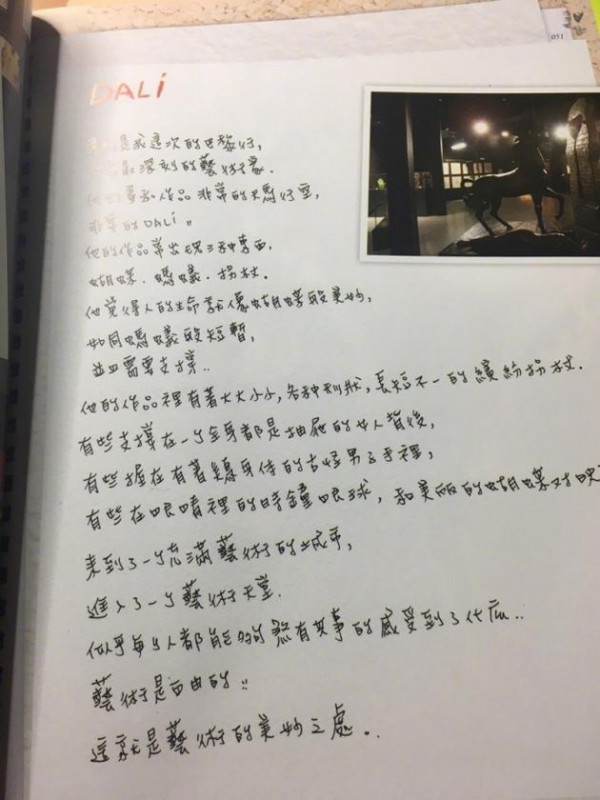 051
DALí
是我這次的巴黎行,
最深刻的藝術家.
他的畫和作品非常的天馬行空,
非常的DALi。
他的作品常出現三種東西,
蝴蝶.螞蟻.拐杖.
他覺得人的生命就像蝴蝶般美妙,
如同螞蟻般短暫,
並且需要支撐..
他的作品裡有著大大小小,各种形狀,長短不一的繽紛拐杖.
有些支撐在一个全身都是抽屜的女人背後,
有些握在有著身体的古怪男子手裡,
有些在眼睛裡的時鐘眼球,和美丽的蝴蝶对映
來到了一个充滿藝術的城市,
進入了一个藝術天堂.
似乎每个人都能夠煞有其事的感受到了什麼..
藝術是自由的..
這就是藝術的美妙之處..